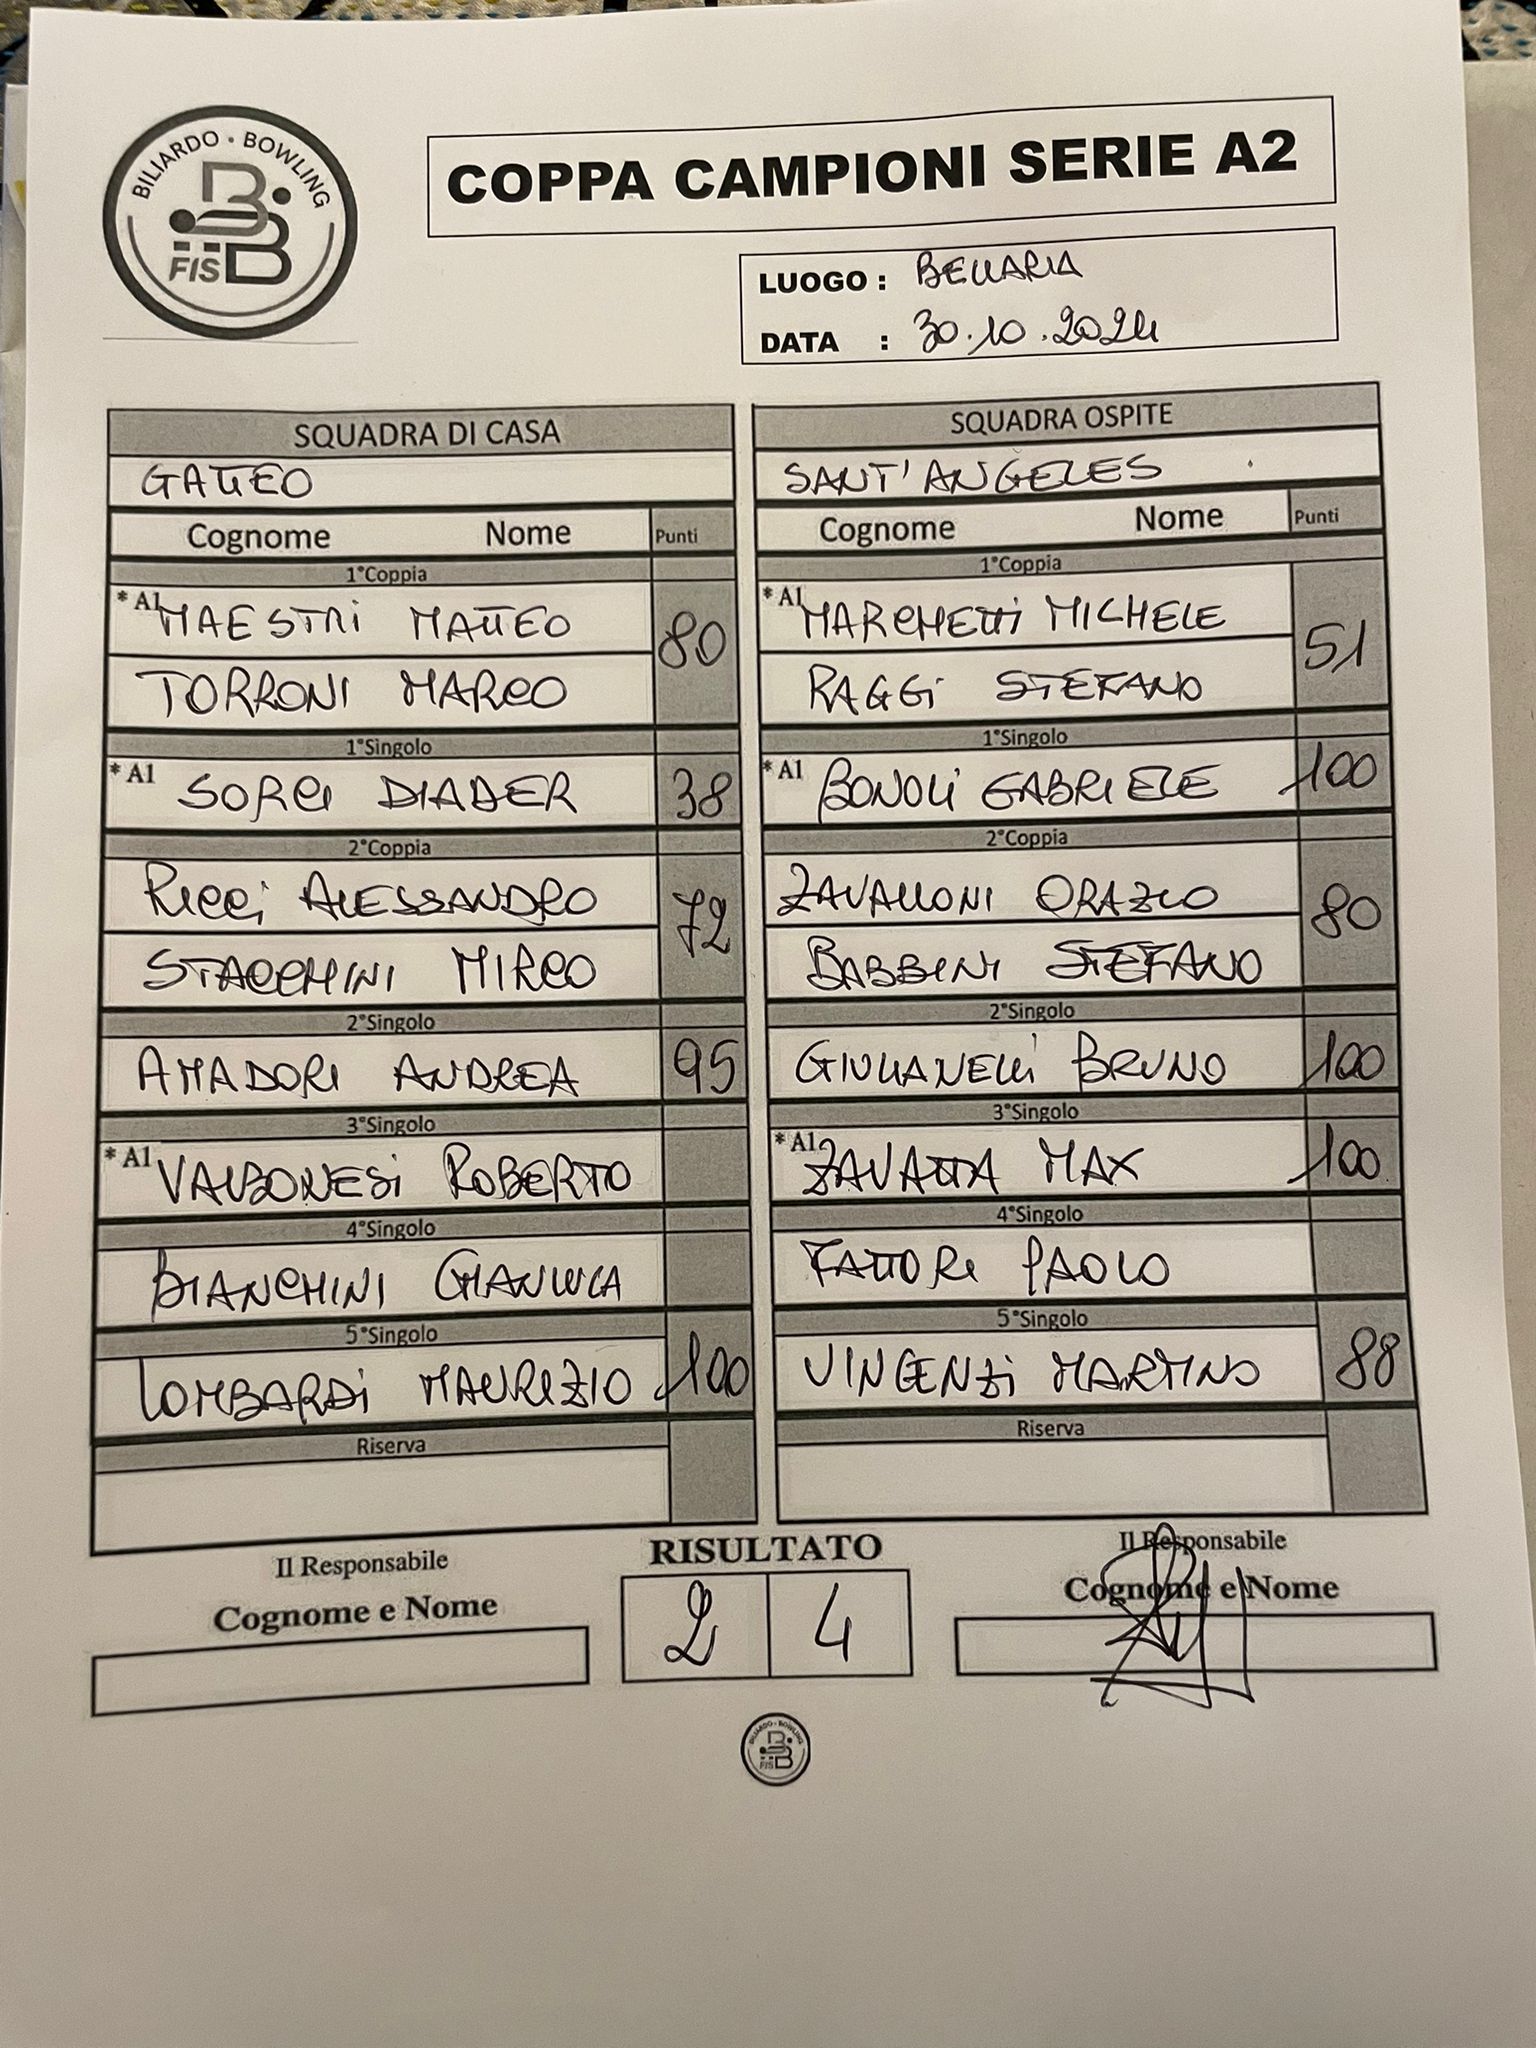 BILIARDO · BOWLING
FISBB
COPPA CAMPIONI SERIE A2
LUOGO : BELLARIA
DATA : 30.10.2024
SQUADRA DI CASA
GATTEO
Cognome Nome Punti
1°Coppia
* A1 MAESTRI MATTEO 80
TORRONI MARCO
1°Singolo
* A1 SORCI DIADER 38
2°Coppia
RICCI ALESSANDRO 72
STACCHINI MIRCO
2°Singolo
AMADORI ANDREA 95
3°Singolo
* A1 VALBONESI ROBERTO
4°Singolo
BIANCHINI GIANLUCA
5°Singolo
LOMBARDI MAURIZIO 100
Riserva
SQUADRA OSPITE
SANT'ANGELES
Cognome Nome Punti
1°Coppia
* A1 MARCHETTI MICHELE 51
RAGGI STEFANO
1°Singolo
* A1 BONOLI GABRIELE 100
2°Coppia
ZAVALLONI ORAZIO 80
BABBINI STEFANO
2°Singolo
GIULIANELLI BRUNO 100
3°Singolo
* A1 ZAVATTA MAX 100
4°Singolo
FATTORI PAOLO
5°Singolo
VINCENZI MARTINO 88
Riserva
Il Responsabile
Cognome e Nome
RISULTATO
2 4
Il Responsabile
Cognome e Nome
BILIARDO · BOWLING
FISBB